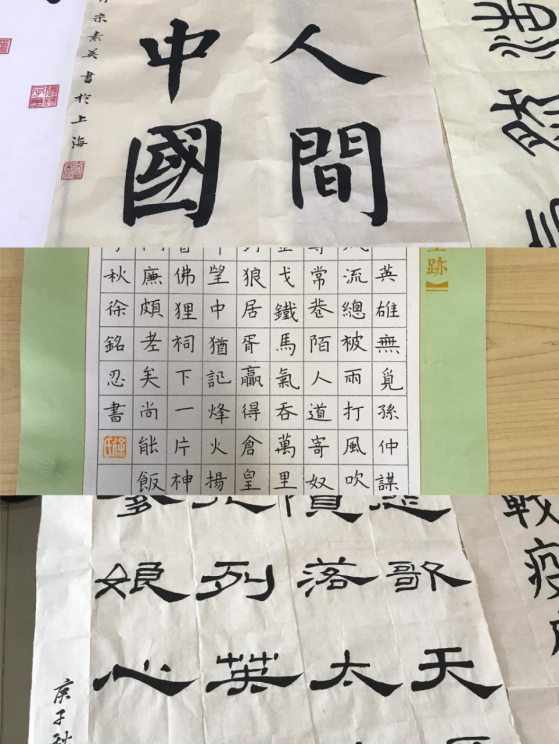 人間
中國
素英書於上海
跡
英雄無覓孫仲謀
流總被雨打風吹
常巷陌人道寄奴
戈鐵馬氣吞萬里
狼居胥贏得倉皇
望中猶記烽火揚
佛狸祠下一片神
廉頗老矣尚能飯
秋徐銘忍書
戰疫
歌天
落太
列英
娘心
庚子秋